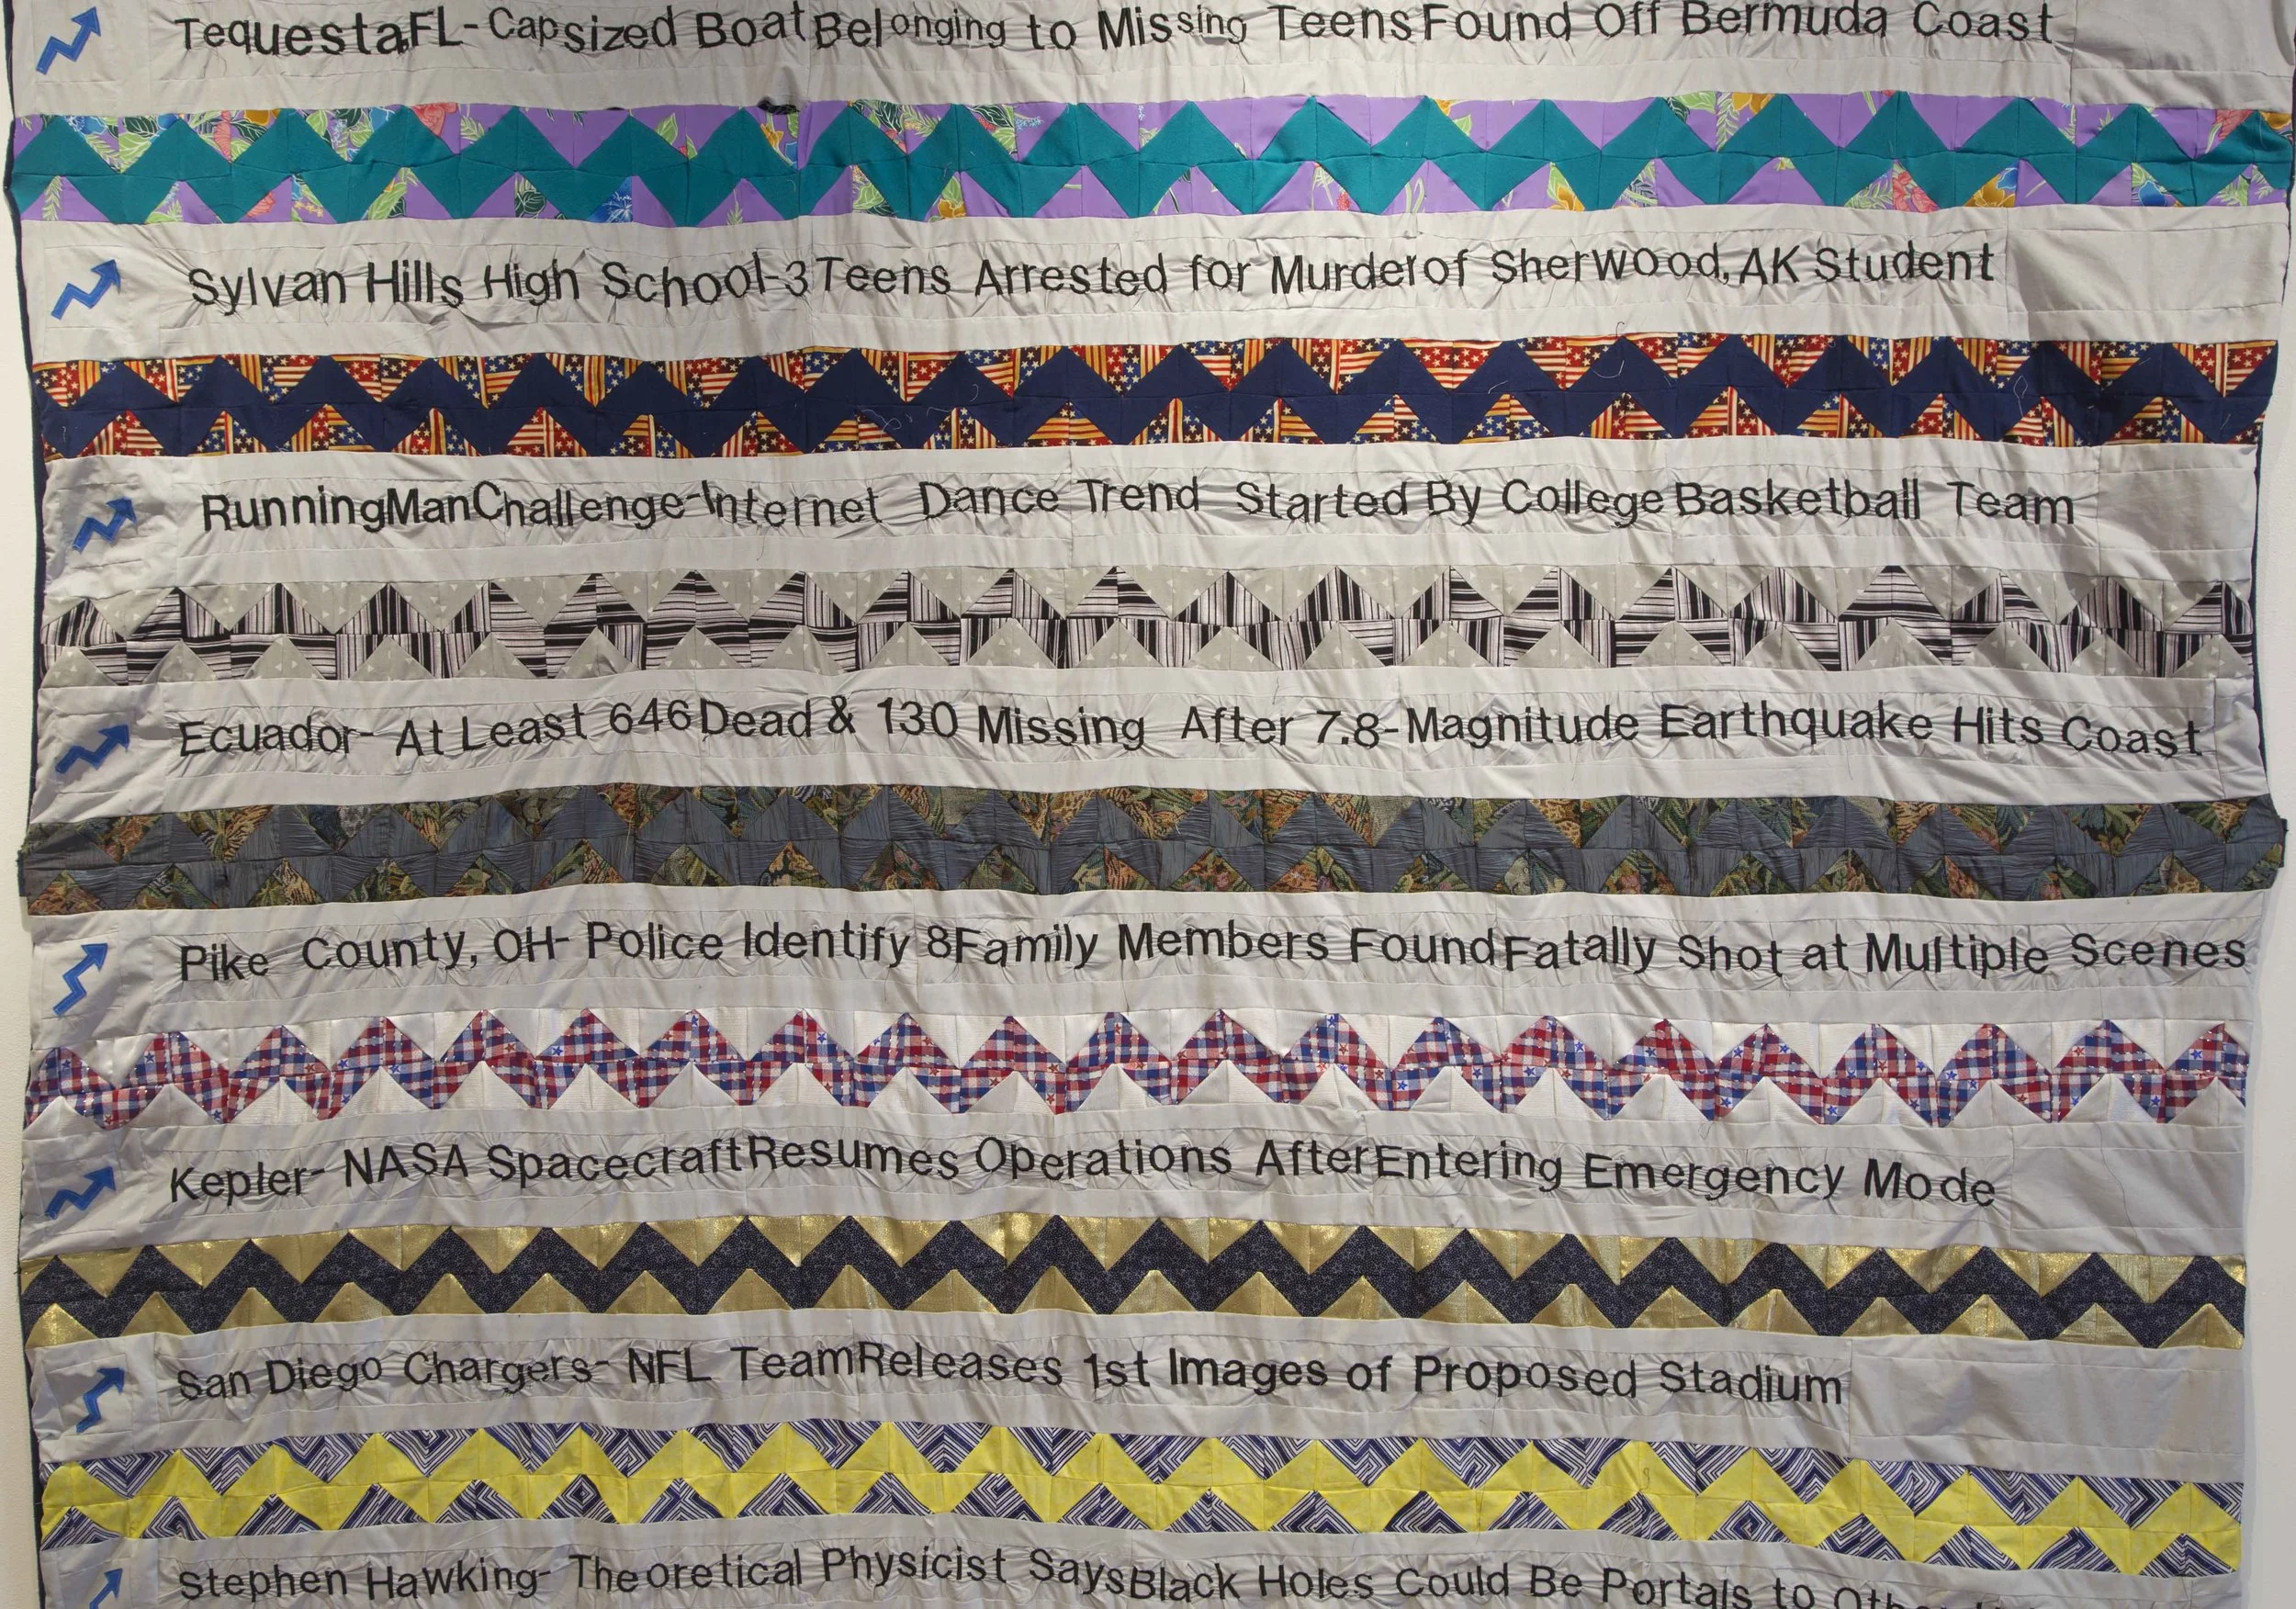 Tequesta FL- Capsized Boat Belonging to Missing Teens Found Off Bermuda Coast
Sylvan Hills High School-3 Teens Arrested for Murder of Sherwood, AK Student
Running Man Challenge-Internet Dance Trend Started By College Basketball Team
Ecuador- At Least 646 Dead & 130 Missing After 7.8-Magnitude Earthquake Hits Coast
Pike County, OH- Police Identify 8 Family Members Found Fatally Shot at Multiple Scenes
Kepler- NASA Spacecraft Resumes Operations After Entering Emergency Mode
San Diego Chargers- NFL Team Releases 1st Images of Proposed Stadium
Stephen Hawking- Theoretical Physicist Says Black Holes Could Be Portals to